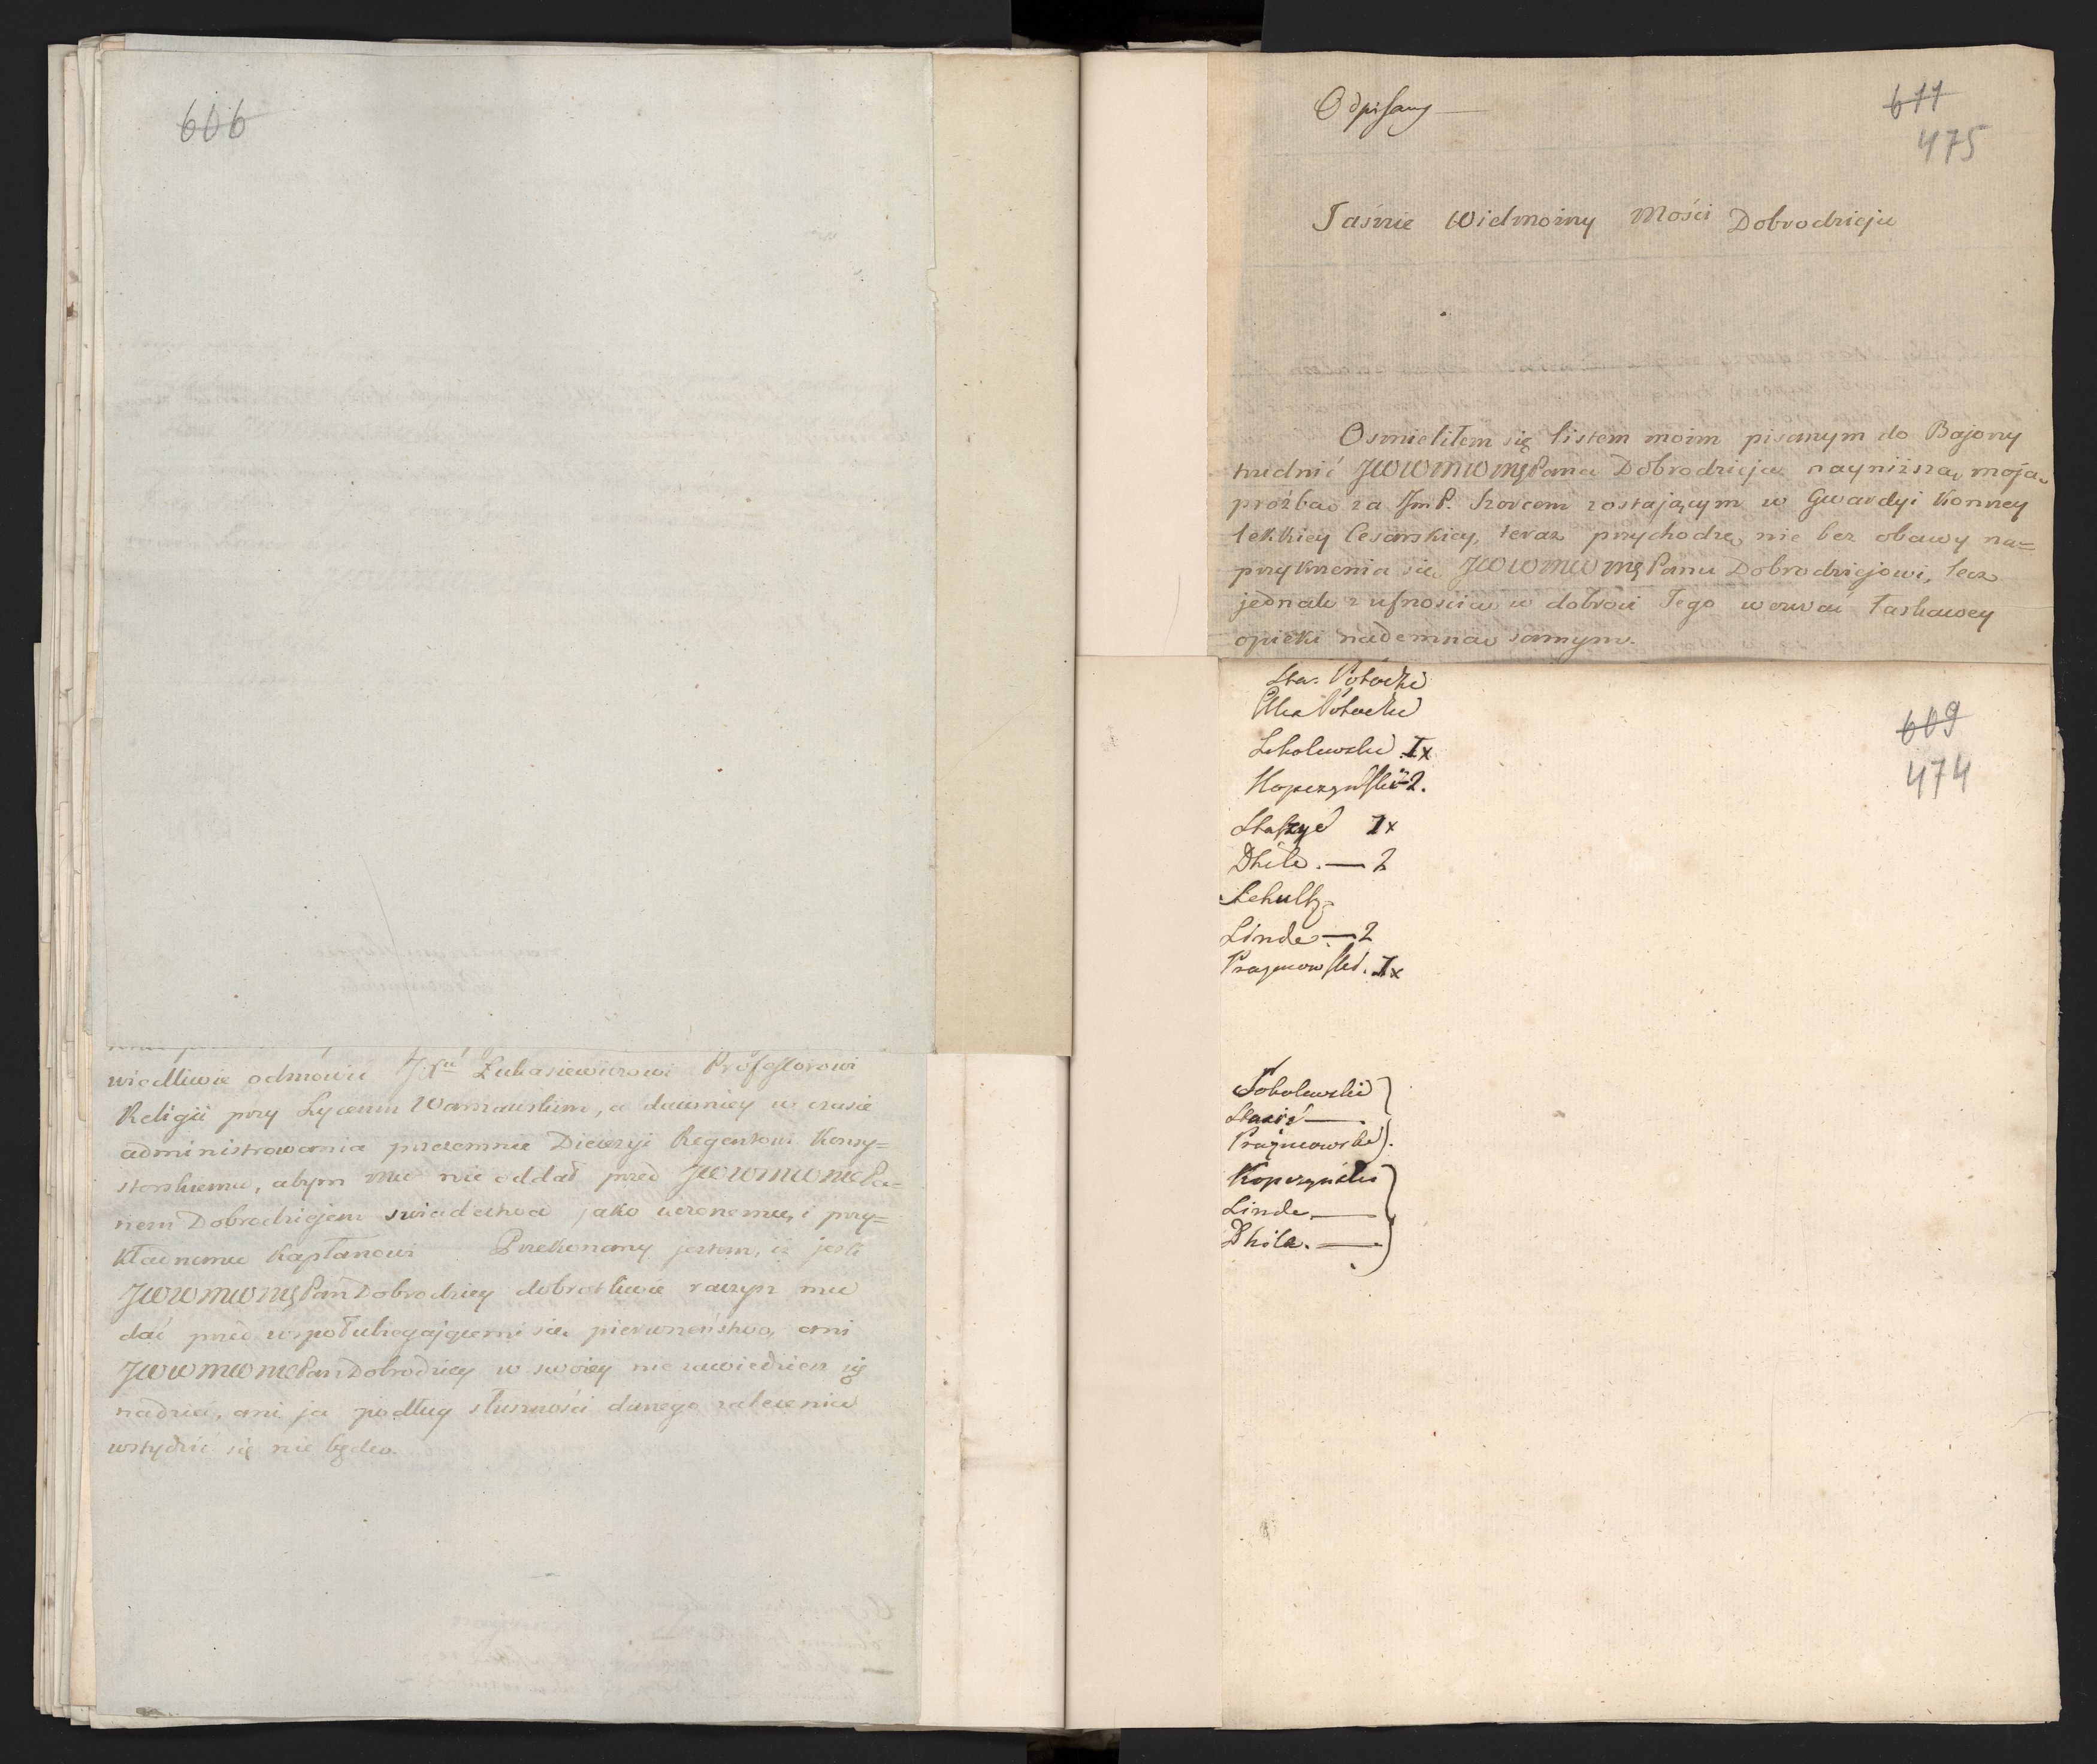 606
wiedliwie odmowić JXu Łukasiewiczowi Professorowi
Religii przy Lyceum Warszawskim, a dawniey w czasie
administrowania przezemnie Diecezyi Regentowi Konsy=
storskiemu, abym mu nie oddał przed JWWMWMc Pa=
nem Dobrodziejem swiadectwa jako uczonemu, i przy=
kładnemu Kapłanowi Przekonany jestem, iż jeśli
JWWMWMę Pan Dobrodziey dobrotliwie raczysz mu
dać przed wspołubiegającemi się pierwszeństwo, ani
JWWMWMc Pan Dobrodziey w swoiey nie zawiedziesz się
nadziei, ani ja podług słuszności danego zalecenia
wstydzić się nie będę.
Odpisany —
611
475
Jaśnie Wielmożny Mości Dobrodzieju
Osmieliłem się listem moim pisanym do Bajony
trudnić JWWMWMę Pana Dobrodzieja nayniższą moją
prożbą za JmP. Szorcem zostającym w Gwardyi Konney
lekkiey Cesarskiey, teraz przychodzę nie bez obawy na=
przykrzenia się JWWMWMę Panu Dobrodziejowi, lecz
jednak z ufnością w dobroci Jego wezwać łaskawey
opieki nademną samym.
Sta. Potocki
Potocki
609
474
Sobolewski Ix
Kopczyński 2.
Staszyc Ix
Dhile. — 2
Schultz
Linde — 2
Prażmowski. Ix
Sobolewski
Staszic —
Prażmowski
Kopczyński
Linde —
Dhile. —